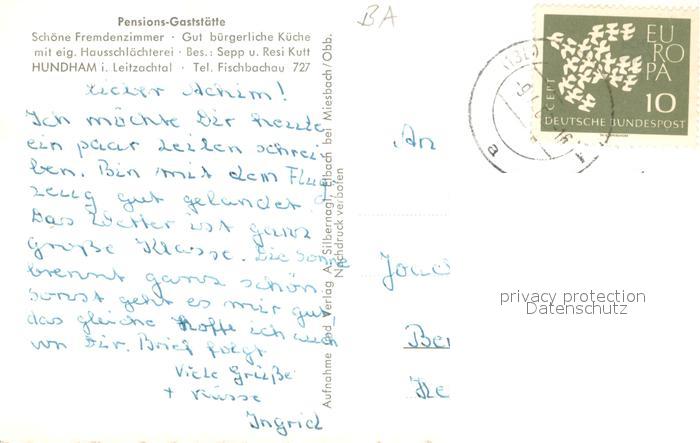 Pensions-Gaststätte
Schöne Fremdenzimmer · Gut bürgerliche Küche
mit eig. Hausschlächterei · Bes.: Sepp u. Resi Kutt
HUNDHAM i. Leitzachtal · Tel. Fischbachau 727
Lieber Achim!
Ich möchte Dir heute
ein paar Zeilen schrei
ben. Bin mit dem Flug
zeug gut gelandet.
Das Wetter ist ganz
große Klasse. Die Sonne
brennt ganz schön.
Sonst geht es mir gut
das gleiche hoffe ich auch
von Dir. Brief folgt
Viele Grüße
+ Küsse
Ingrid
Aufnahme und Verlag A. Silbernagl, Elbach bei Miesbach/Obb.
Nachdruck verboten
BA
EU
RO
PA
CEPT
10
DEUTSCHE BUNDESPOST
a
An
privacy protection
Datenschutz